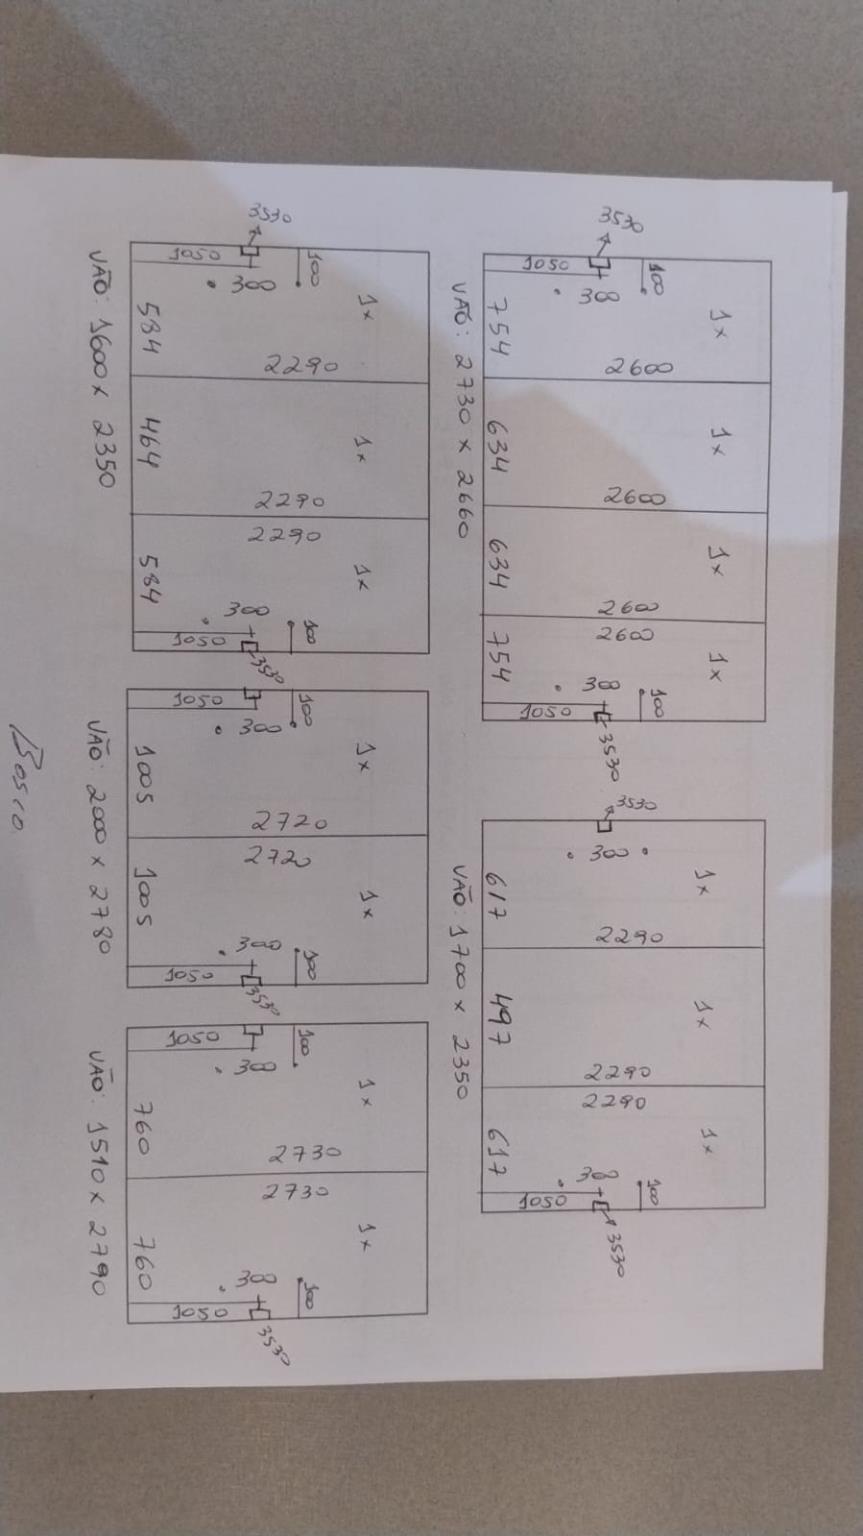 1x 1x 1x 1x
100 100
2600 2600 2600 2600
3530 300 300 3530
1050 1050
754 634 634 754
VÃO: 2730 x 2660
1x 1x 1x
100
2290 2290
3530 300 300 3530
1050
617 497 617
VÃO: 1700 x 2350
1x 1x 1x
100 100
2290 2290 2290
3530 300 300 3530
1050 1050
584 464 584
VÃO: 1600 x 2350
1x 1x
100 100
2720 2720
300 300 3530
1050 1050
1005 1005
VÃO: 2000 x 2780
1x 1x
100 100
2730 2730
300 300 3530
1050 1050
760 760
VÃO: 1510 x 2790
Bosco